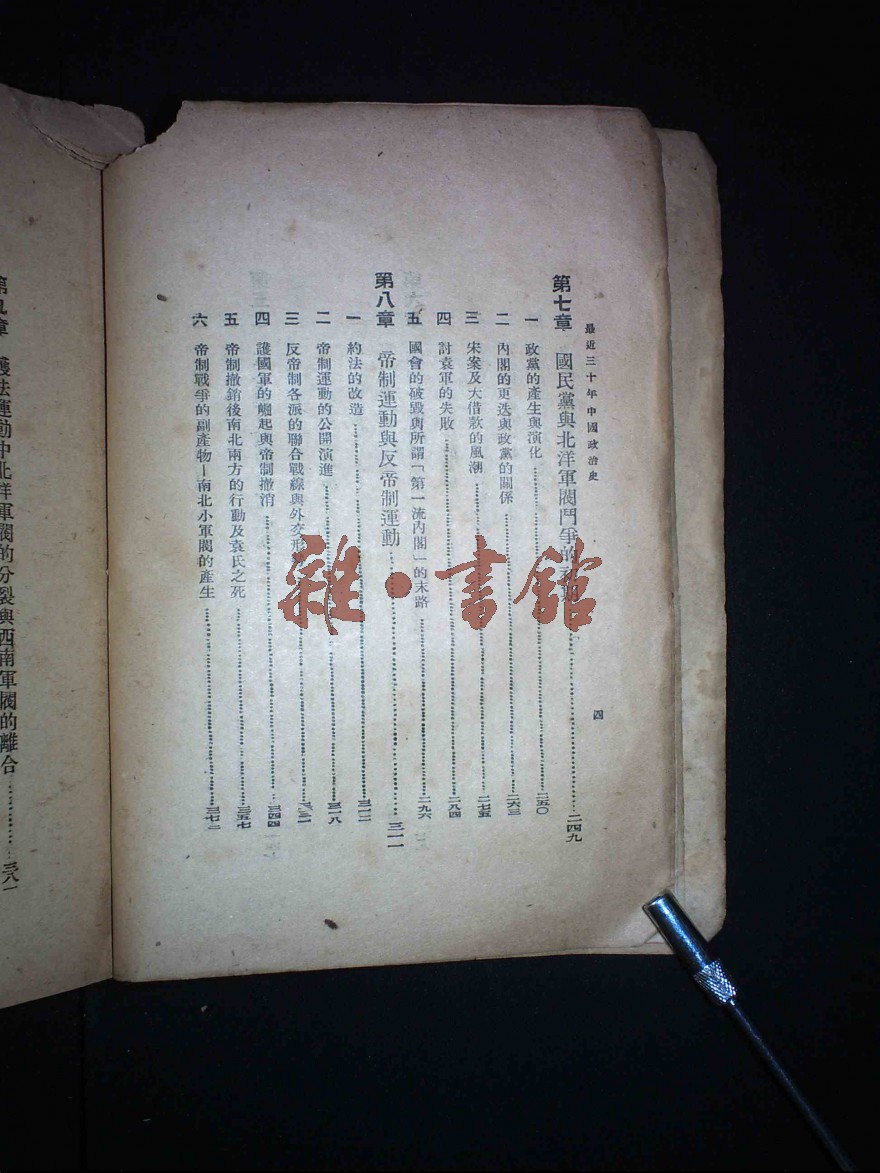 最近三十年中國政治史
四
第七章　國民黨與北洋軍閥鬥爭的　　二四九
一　政黨的產生與演化　　二五〇
二　內閣的更迭與政黨的關係　　二六三
三　宋案及大借款的風潮　　二七五
四　討袁軍的失敗　　二八四
五　國會的破毀與所謂「第一流內閣」的末路　　二九六
第八章　帝制運動與反帝制運動　　三一一
一　約法的改造　　三一二
二　帝制運動的公開演進　　三一八
三　反帝制各派的聯合戰線與外交形
四　護國軍的崛起與帝制撤消　　三四四
五　帝制撤銷後南北兩方的行動及袁氏之死　　三五七
六　帝制戰爭的副產物—南北小軍閥的產生　　三七二
第九章　護法運動中北洋軍閥的分裂與西南軍閥的離合　　三八一
雜·書館